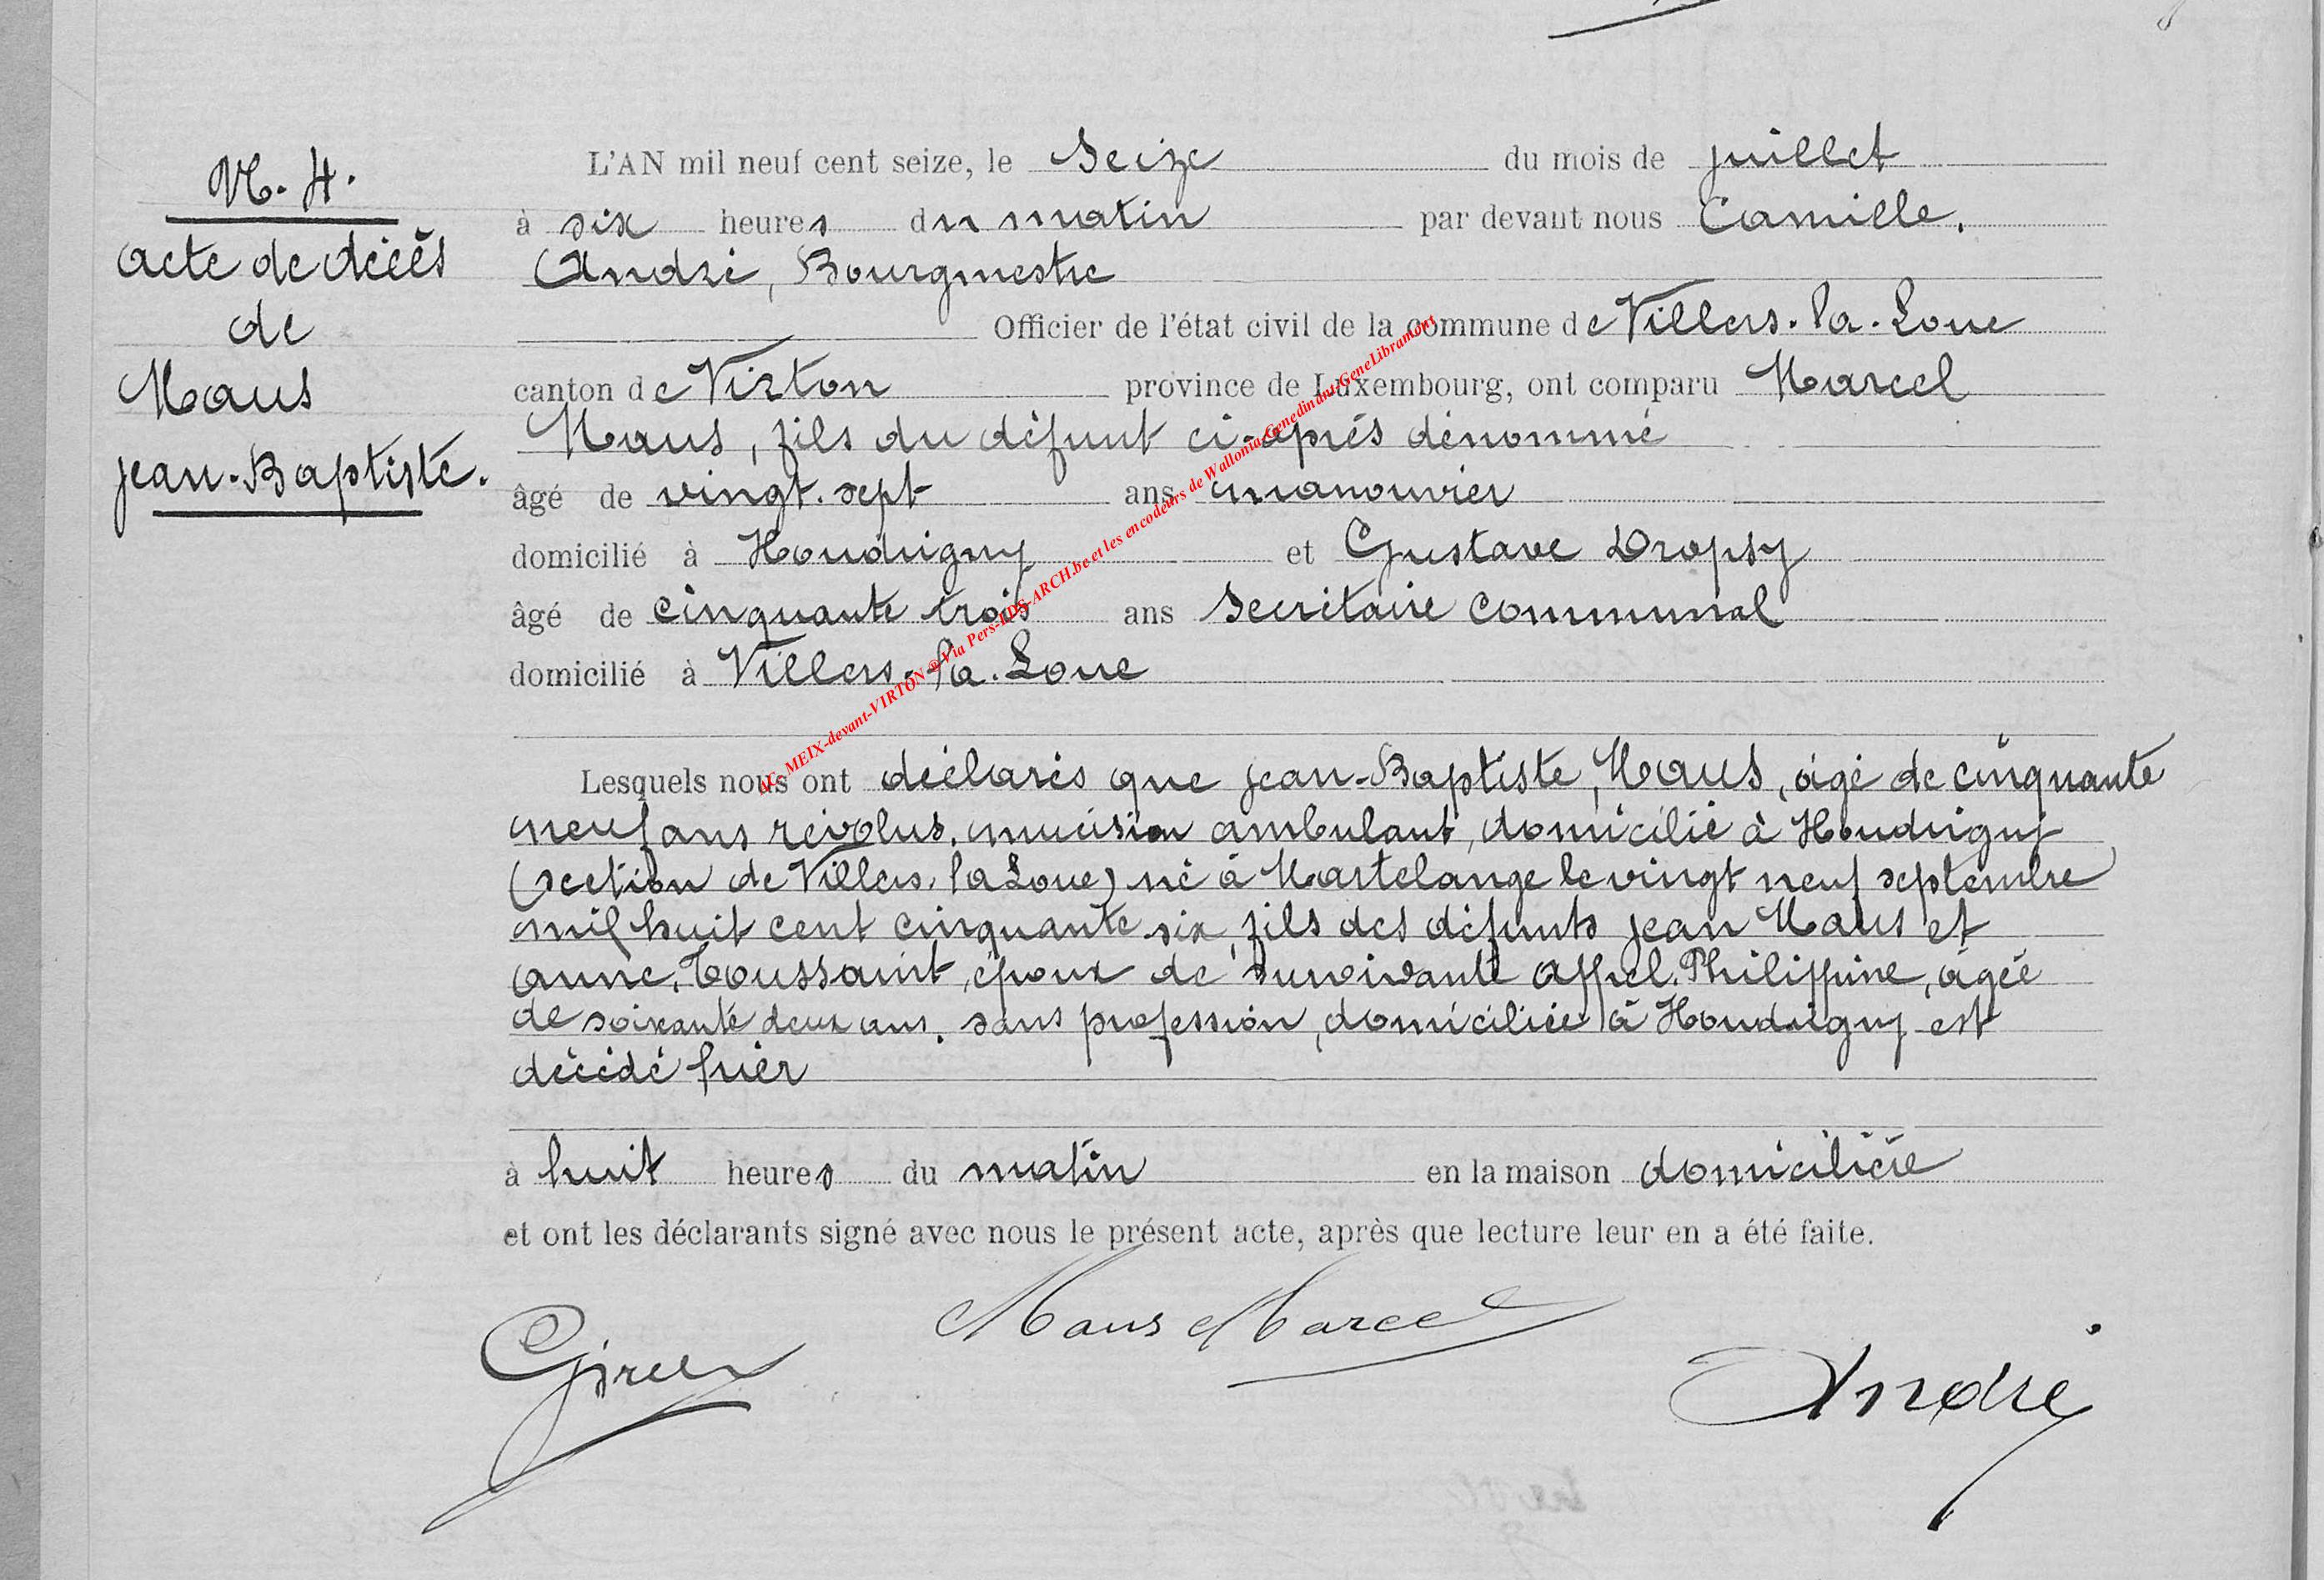 N. 4.
acte de décès
de
Maus
jean-Baptiste.
L'AN mil neuf cent seize, le Seize du mois de juillet
à six heures du matin par devant nous Camille.
André, Bourgmestre
Officier de l'état civil de la commune de Villers-la-Loue
canton de Virton province de Luxembourg, ont comparu Marcel
Maus, fils du défunt ci-après dénommé
âgé de vingt-sept ans manouvrier
domicilié à Houdrigny et Gustave Dropsy
âgé de cinquante trois ans Secrétaire communal
domicilié à Villers-la-Loue
Lesquels nous ont déclarés que jean-Baptiste, Maus, âgé de cinquante
neuf ans révolus, mucisien ambulant, domicilié à Houdrigny
(section de Villers-la Loue) né à Martelange le vingt neuf septembre
mil huit cent cinquante six, fils des défunts jean Maus et
anne, Toussaint, époux de survivante Appel. Philippine, âgée
de soixante deux ans, sans profession, domiciliée à Houdrigny est
décédé hier
à huit heures du matin en la maison domicilière
et ont les déclarants signé avec nous le présent acte, après que lecture leur en a été faite.
Maus Marcel
André
MEIX-devant-VIRTON @ Via Pers-LDS-ARCH.be et les encodeurs de Wallonia-Genedinant-GeneLibramont